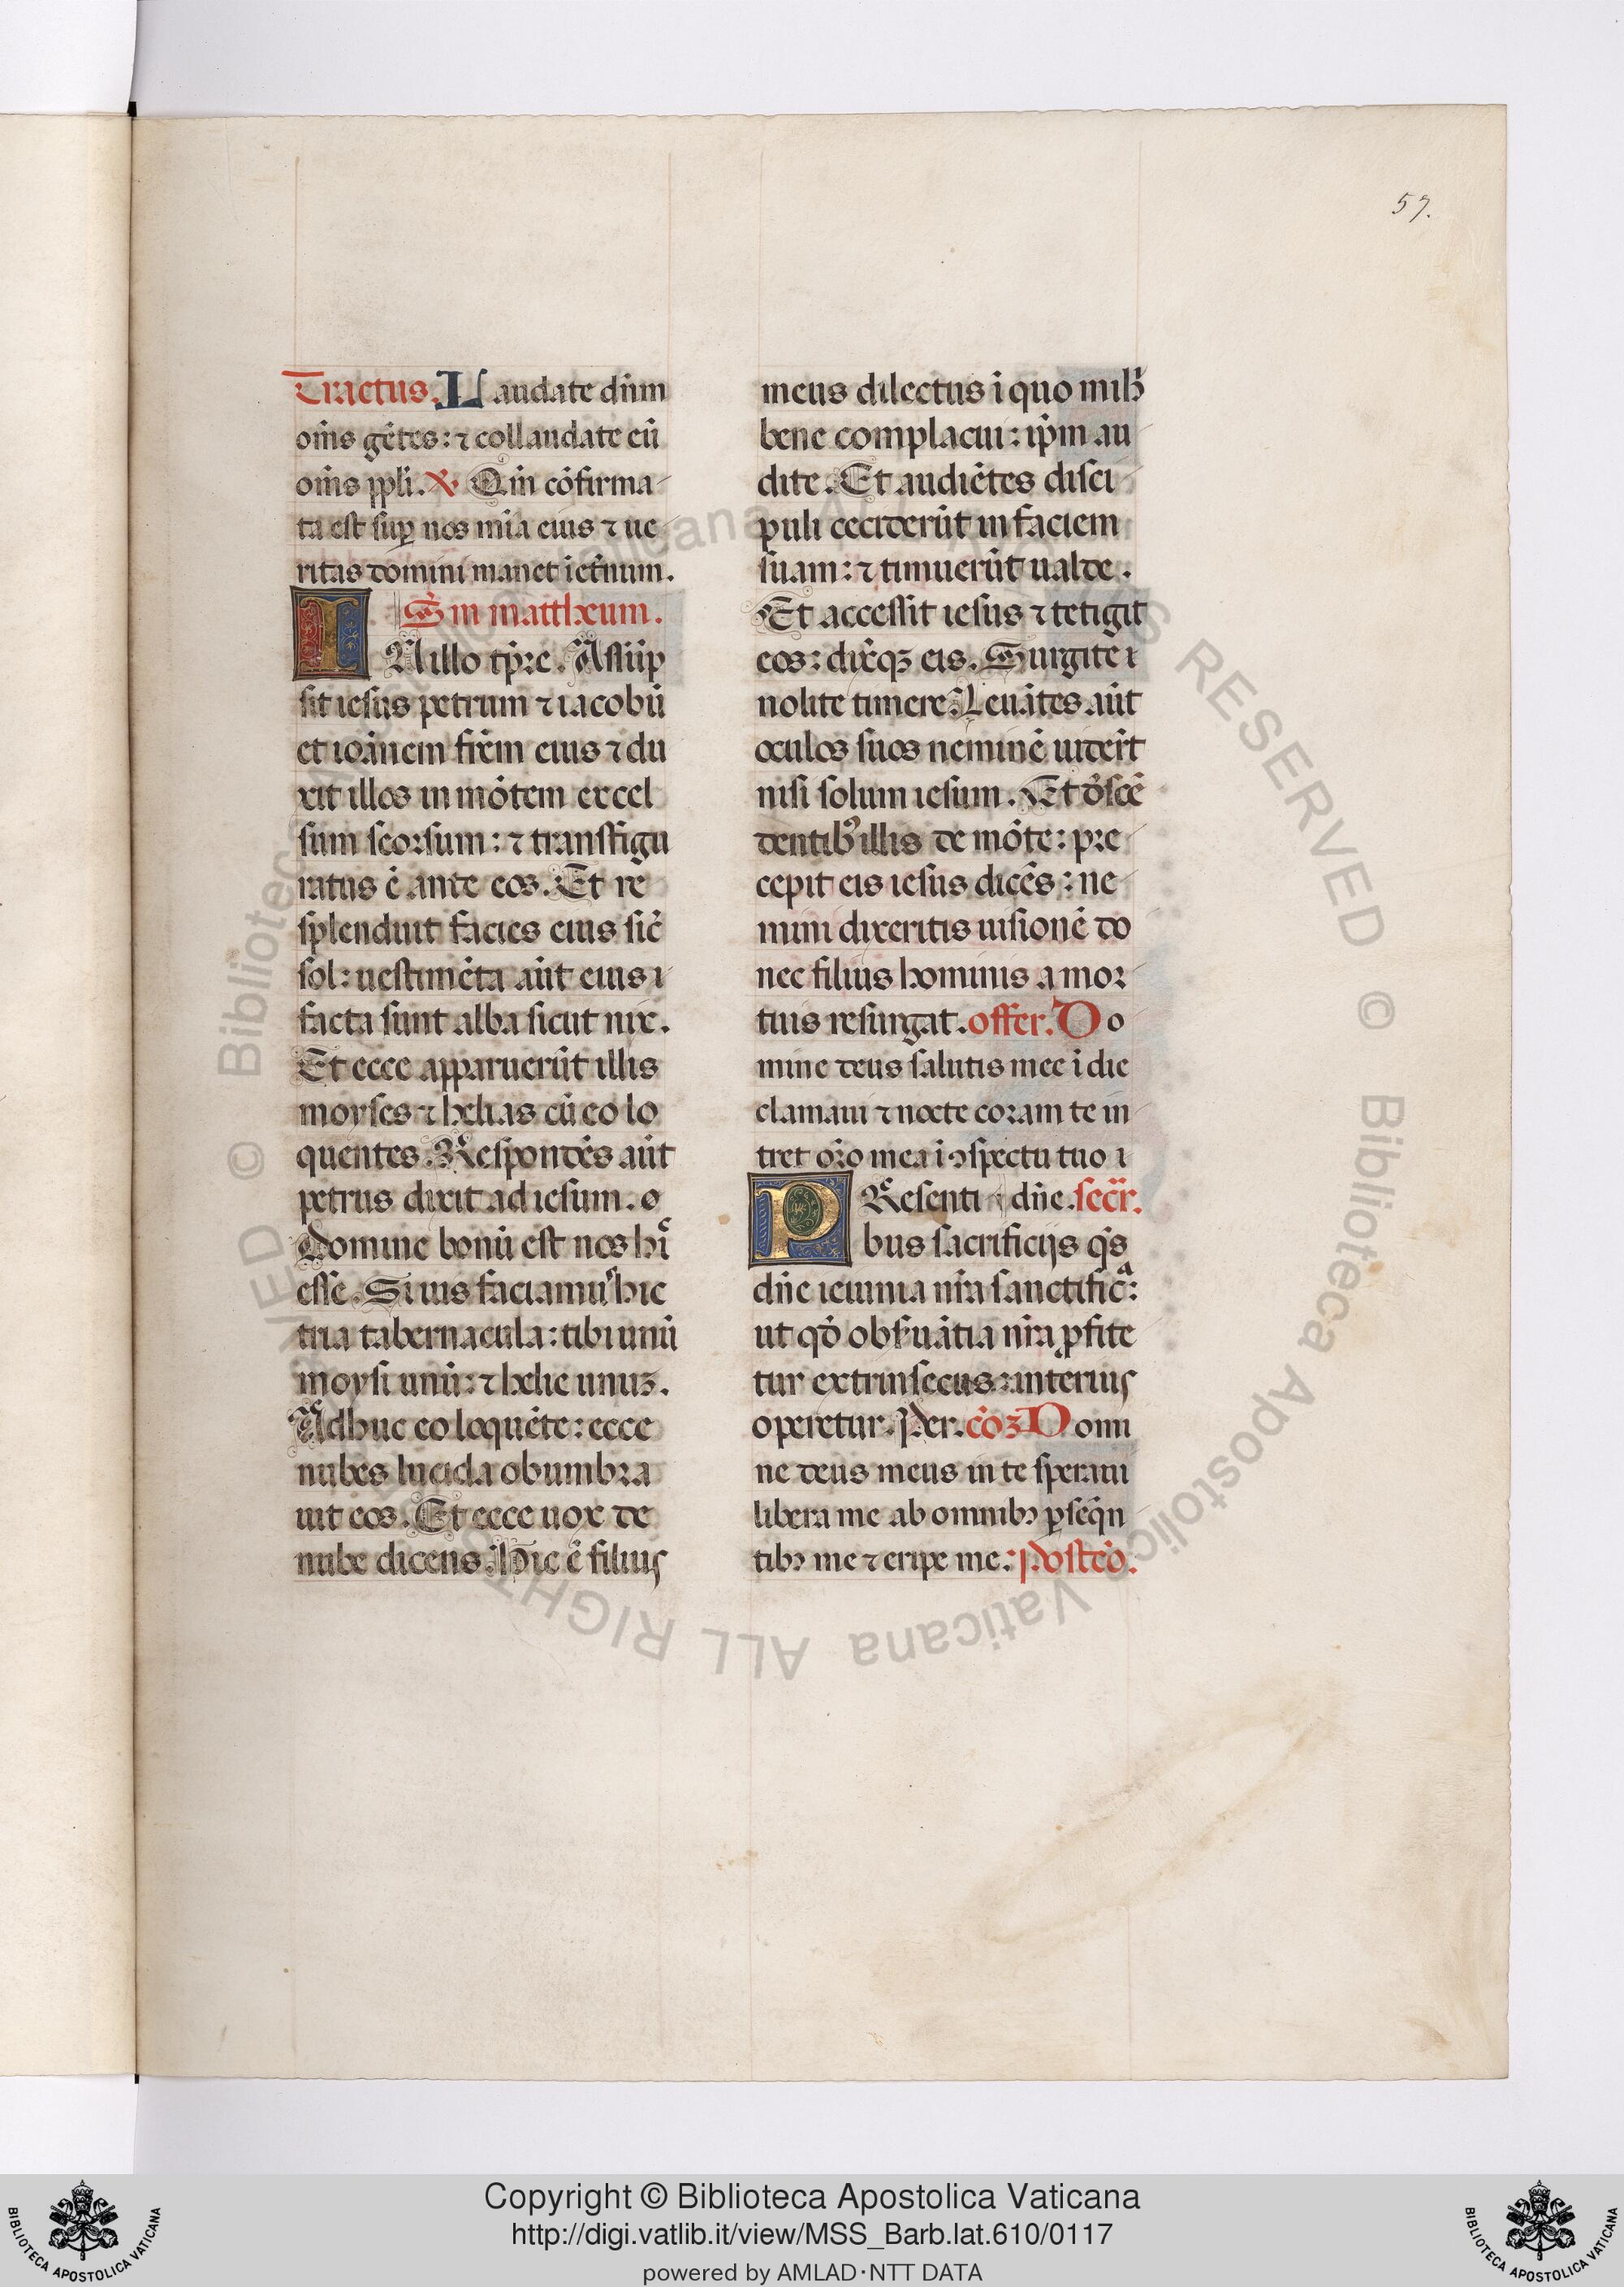 57.
Tractus. Laudate dn̄m
om̄s gētes: ⁊ collaudate eū
om̄s ppl̄i. ℣. Qm̄ cōfirma
ta est sup̲ nos mīa eius ⁊ ue
ritas domini manet ieťnum.
S̄m mattheum.
IN illo tp̄re. Assūp
sit iesus petrum ⁊ iacobū
et ioānem fr̄em eius ⁊ du
xit illos in mōtem excel
sum seorsum: ⁊ transfigu
ratus ē ante eos. Et re
splenduit facies eius sic̄
sol: uestimēta aūt eius
facta sunt alba sicut nix.
Et ecce apparuerūt illis
moyses ⁊ helias cū eo lo
quentes. Respondēs aūt
petrus dixit ad iesum. o
Domine bonū est nos hi͑
esse. Si uis faciamus hic
tria tabernacula: tibi unū
moysi unū: ⁊ helie unuꝫ.
Adhuc eo loquēte: ecce
nubes lucida obumbra
uit eos. Et ecce uox de
nube dicens. Hic ē filius
meus dilectus ī quo mihi
bene complacui: ip̄m au
dite. Et audiētes disci
puli ceciderūt in faciem
suam: ⁊ timuerūt ualde.
Et accessit iesus ⁊ tetigit
eos: dix̄qꝫ eis. Surgite
nolite timere. Leuātes aūt
oculos suos neminē uider̄t
nisi solum iesum. Et d̄scē
dentibꝰ illis de mōte: pre
cepit eis iesus dicēs: ne
mini dixeritis uisionē do
nec filius hominis a mor
tuis resurgat. offer. Do
mine deus salutis mee ī die
clamaui ⁊ nocte coram te in
tret or̄o mea ī ꝯspectu tuo
PResenti dn̄e. secr̄.
bus sacrificijs qs̄
dn̄e ieiunia nr̄a sanctificͣ:
ut qd̄ obſuātia nr̄a ꝓfite
tur extrinsecus: interius
operetur. Per. cōꝫ Domi
ne deus meus in te speraui
libera me ab omnibꝫ ꝑseqn̄
tibꝫ me ⁊ eripe me. Postcō.
Copyright © Biblioteca Apostolica Vaticana
http://digi.vatlib.it/view/MSS_Barb.lat.610/0117
powered by AMLAD·NTT DATA
BIBLIOTECA APOSTOLICA VATICANA
BIBLIOTECA APOSTOLICA VATICANA
© Biblioteca Apostolica Vaticana ALL RIGHTS RESERVED © Biblioteca Apostolica Vaticana ALL RIGHTS RESERVED